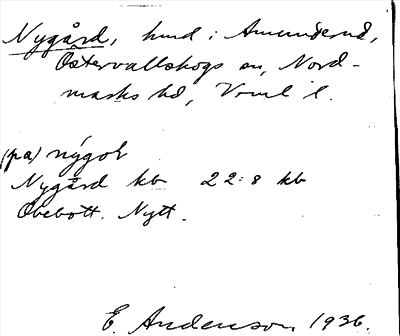 Nygård, hmd i Amunderud,
Östervallskogs sn, Nord-
marks hd, Vrml. l.
(pa) nýgoɫ
Nygård kb 22:8 kb
Obebott. Nytt.
E. Anderson, 1936.